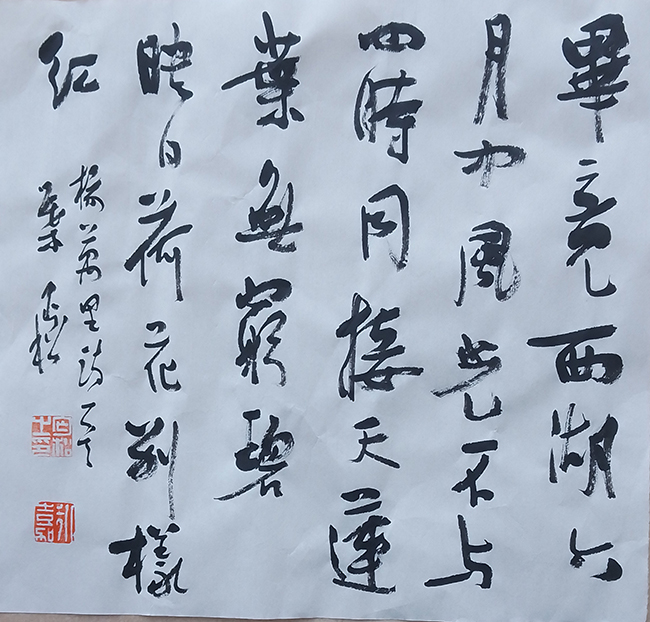 畢竟西湖六
月中風光不与
四時同接天蓮
葉無窮碧
映日荷花别樣
紅
楊萬里詩